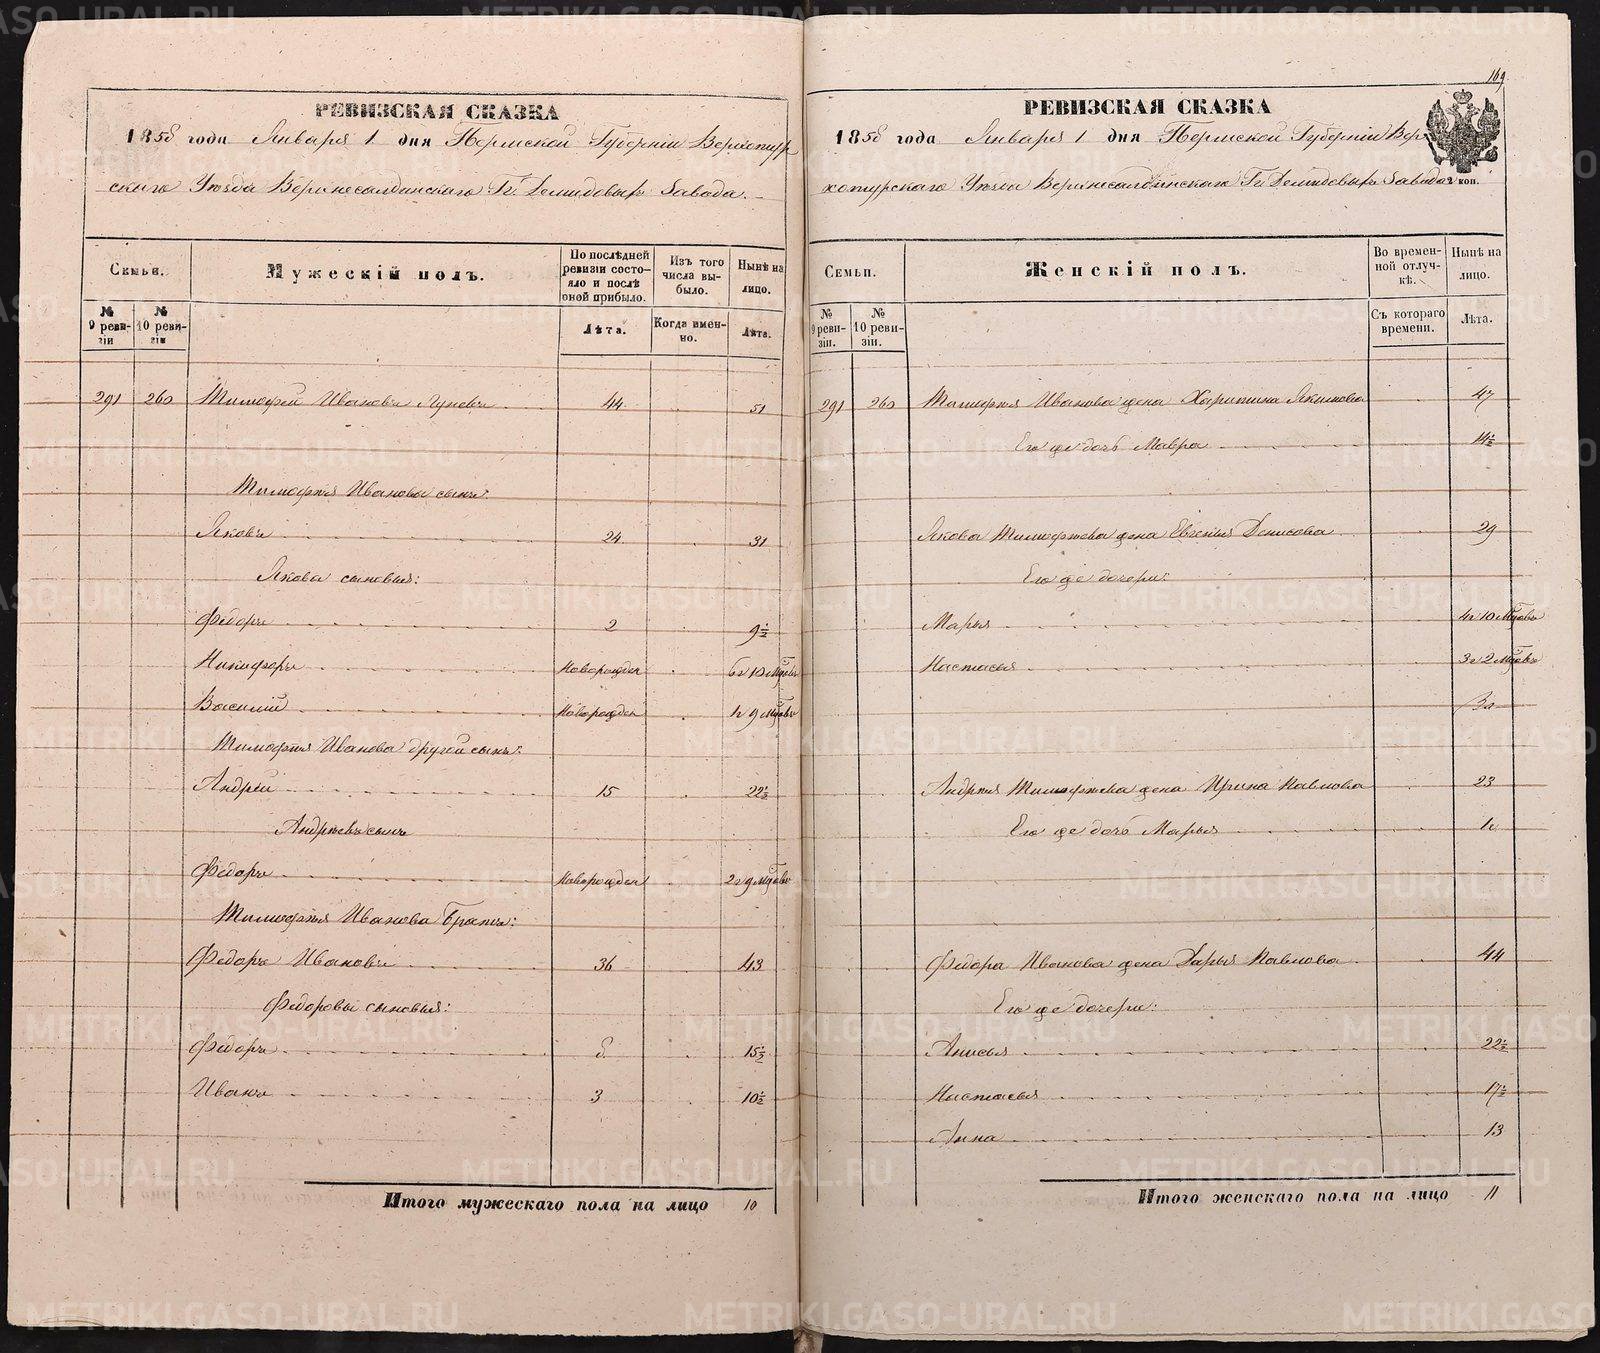 169
РЕВИЗСКАЯ СКАЗКА
1858 года Января 1 дня Пермской Губерніи Верхотур
скаго Уѣзда Верхнесалдинскаго Гг. Демидовыхъ Завода.
Семьи.
Мужескій полъ.
По послѣдней ревизіи состояло и послѣ оной прибыло.
Изъ того числа выбыло.
Нынѣ на лицо.
№ 9 ревизіи
№ 10 ревизіи
Лѣта.
Когда именно.
Лѣта.
291 260 Тимофей Ивановъ 44 51
Тимофѣя Иванова сынъ:
Яковъ 24 31
Якова сыновья:
Федоръ 2 9½
Никифоръ новорожден 6г 10 Мцовъ
Василій новорожден 1г 9 Мцовъ
Тимофѣя Иванова другой сынъ:
Андрей 15 22½
Андрѣевъ сынъ
Федоръ новорожден 2г 9 Мцовъ
Тимофѣя Иванова братъ:
Федоръ Ивановъ 36 43
Федоровы сыновья:
Федоръ 8 15½
Иванъ 3 10½
Итого мужескаго пола на лицо 10
РЕВИЗСКАЯ СКАЗКА
1858 года Января 1 дня Пермской Губерніи Вер
хотурскаго Уѣзда Верхнесалдинскаго Гг Демидовыхъ Завода
коп.
Семьи.
Женскій полъ.
Во временной отлучкѣ.
Нынѣ на лицо.
№ 9 ревизіи.
№ 10 ревизіи.
Съ котораго времени.
Лѣта.
291 260 Тимофѣя Иванова жена Харитина Якимова 47
Его же дочь Мавра 14½
Якова Тимофѣева жена Евгенья Денисова 29
Его же дочери:
Марья 4г 10 Мцовъ
Настасья 3г 2 Мцовъ
Андрея Тимофѣева жена Ирина Павлова 23
Его же дочь Марья 1г
Федора Иванова жена Дарья Павлова 44
Его же дочери:
Анисья 22½
Настасья 17½
Анна 13
Итого женскаго пола на лицо 11
METRIKI.GASO-URAL.RU